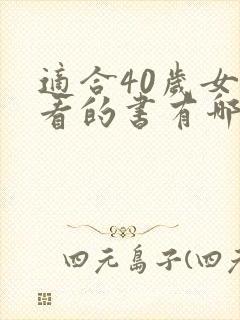 適合40歲女
看的書有哪
四元島子(四元